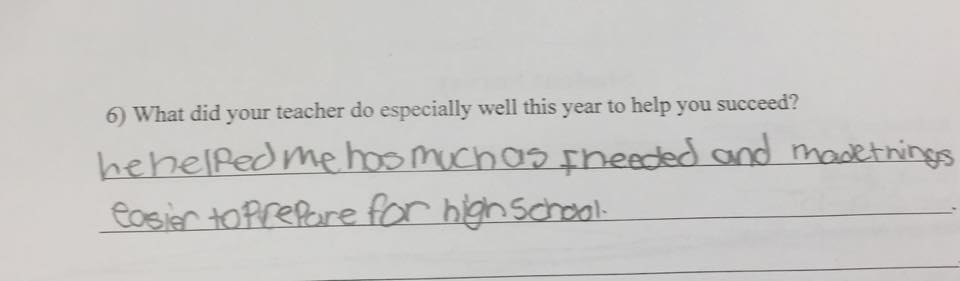 6) What did your teacher do especially well this year to help you succeed?
he helped me hos much as I needed and made things
easier to prepare for high school.